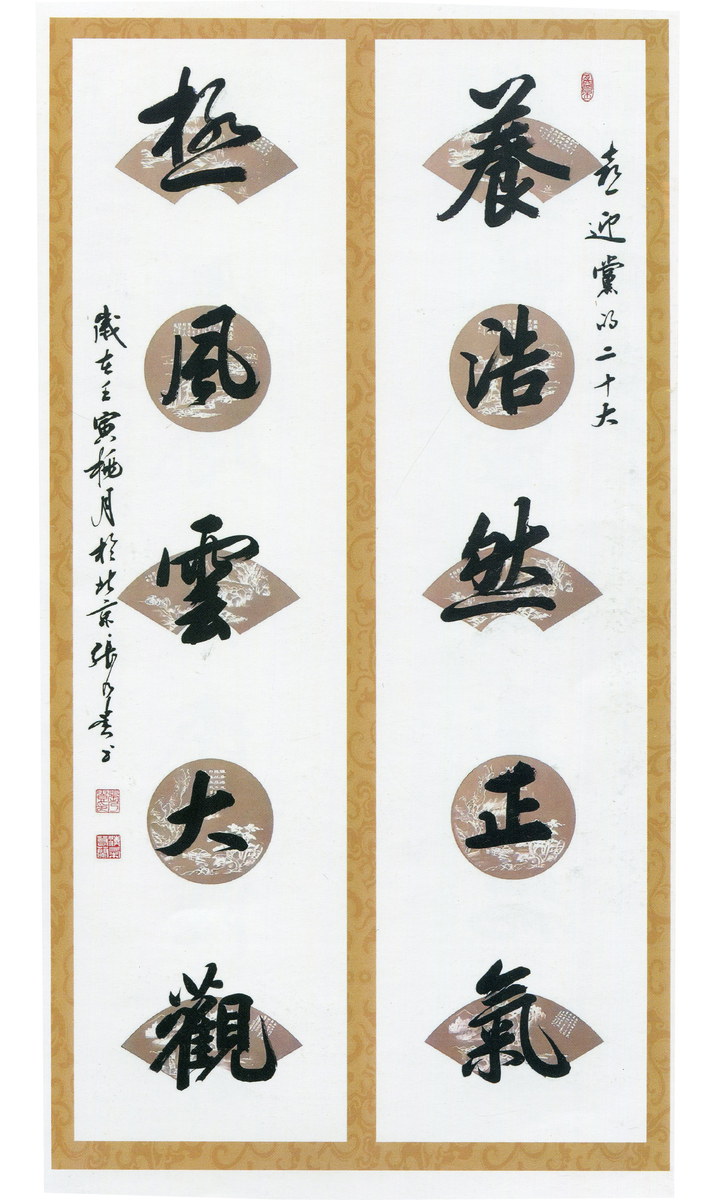 喜迎黨的二十大
養浩然正氣
極風雲大觀
歲在壬寅桃月於北京張乃貴書